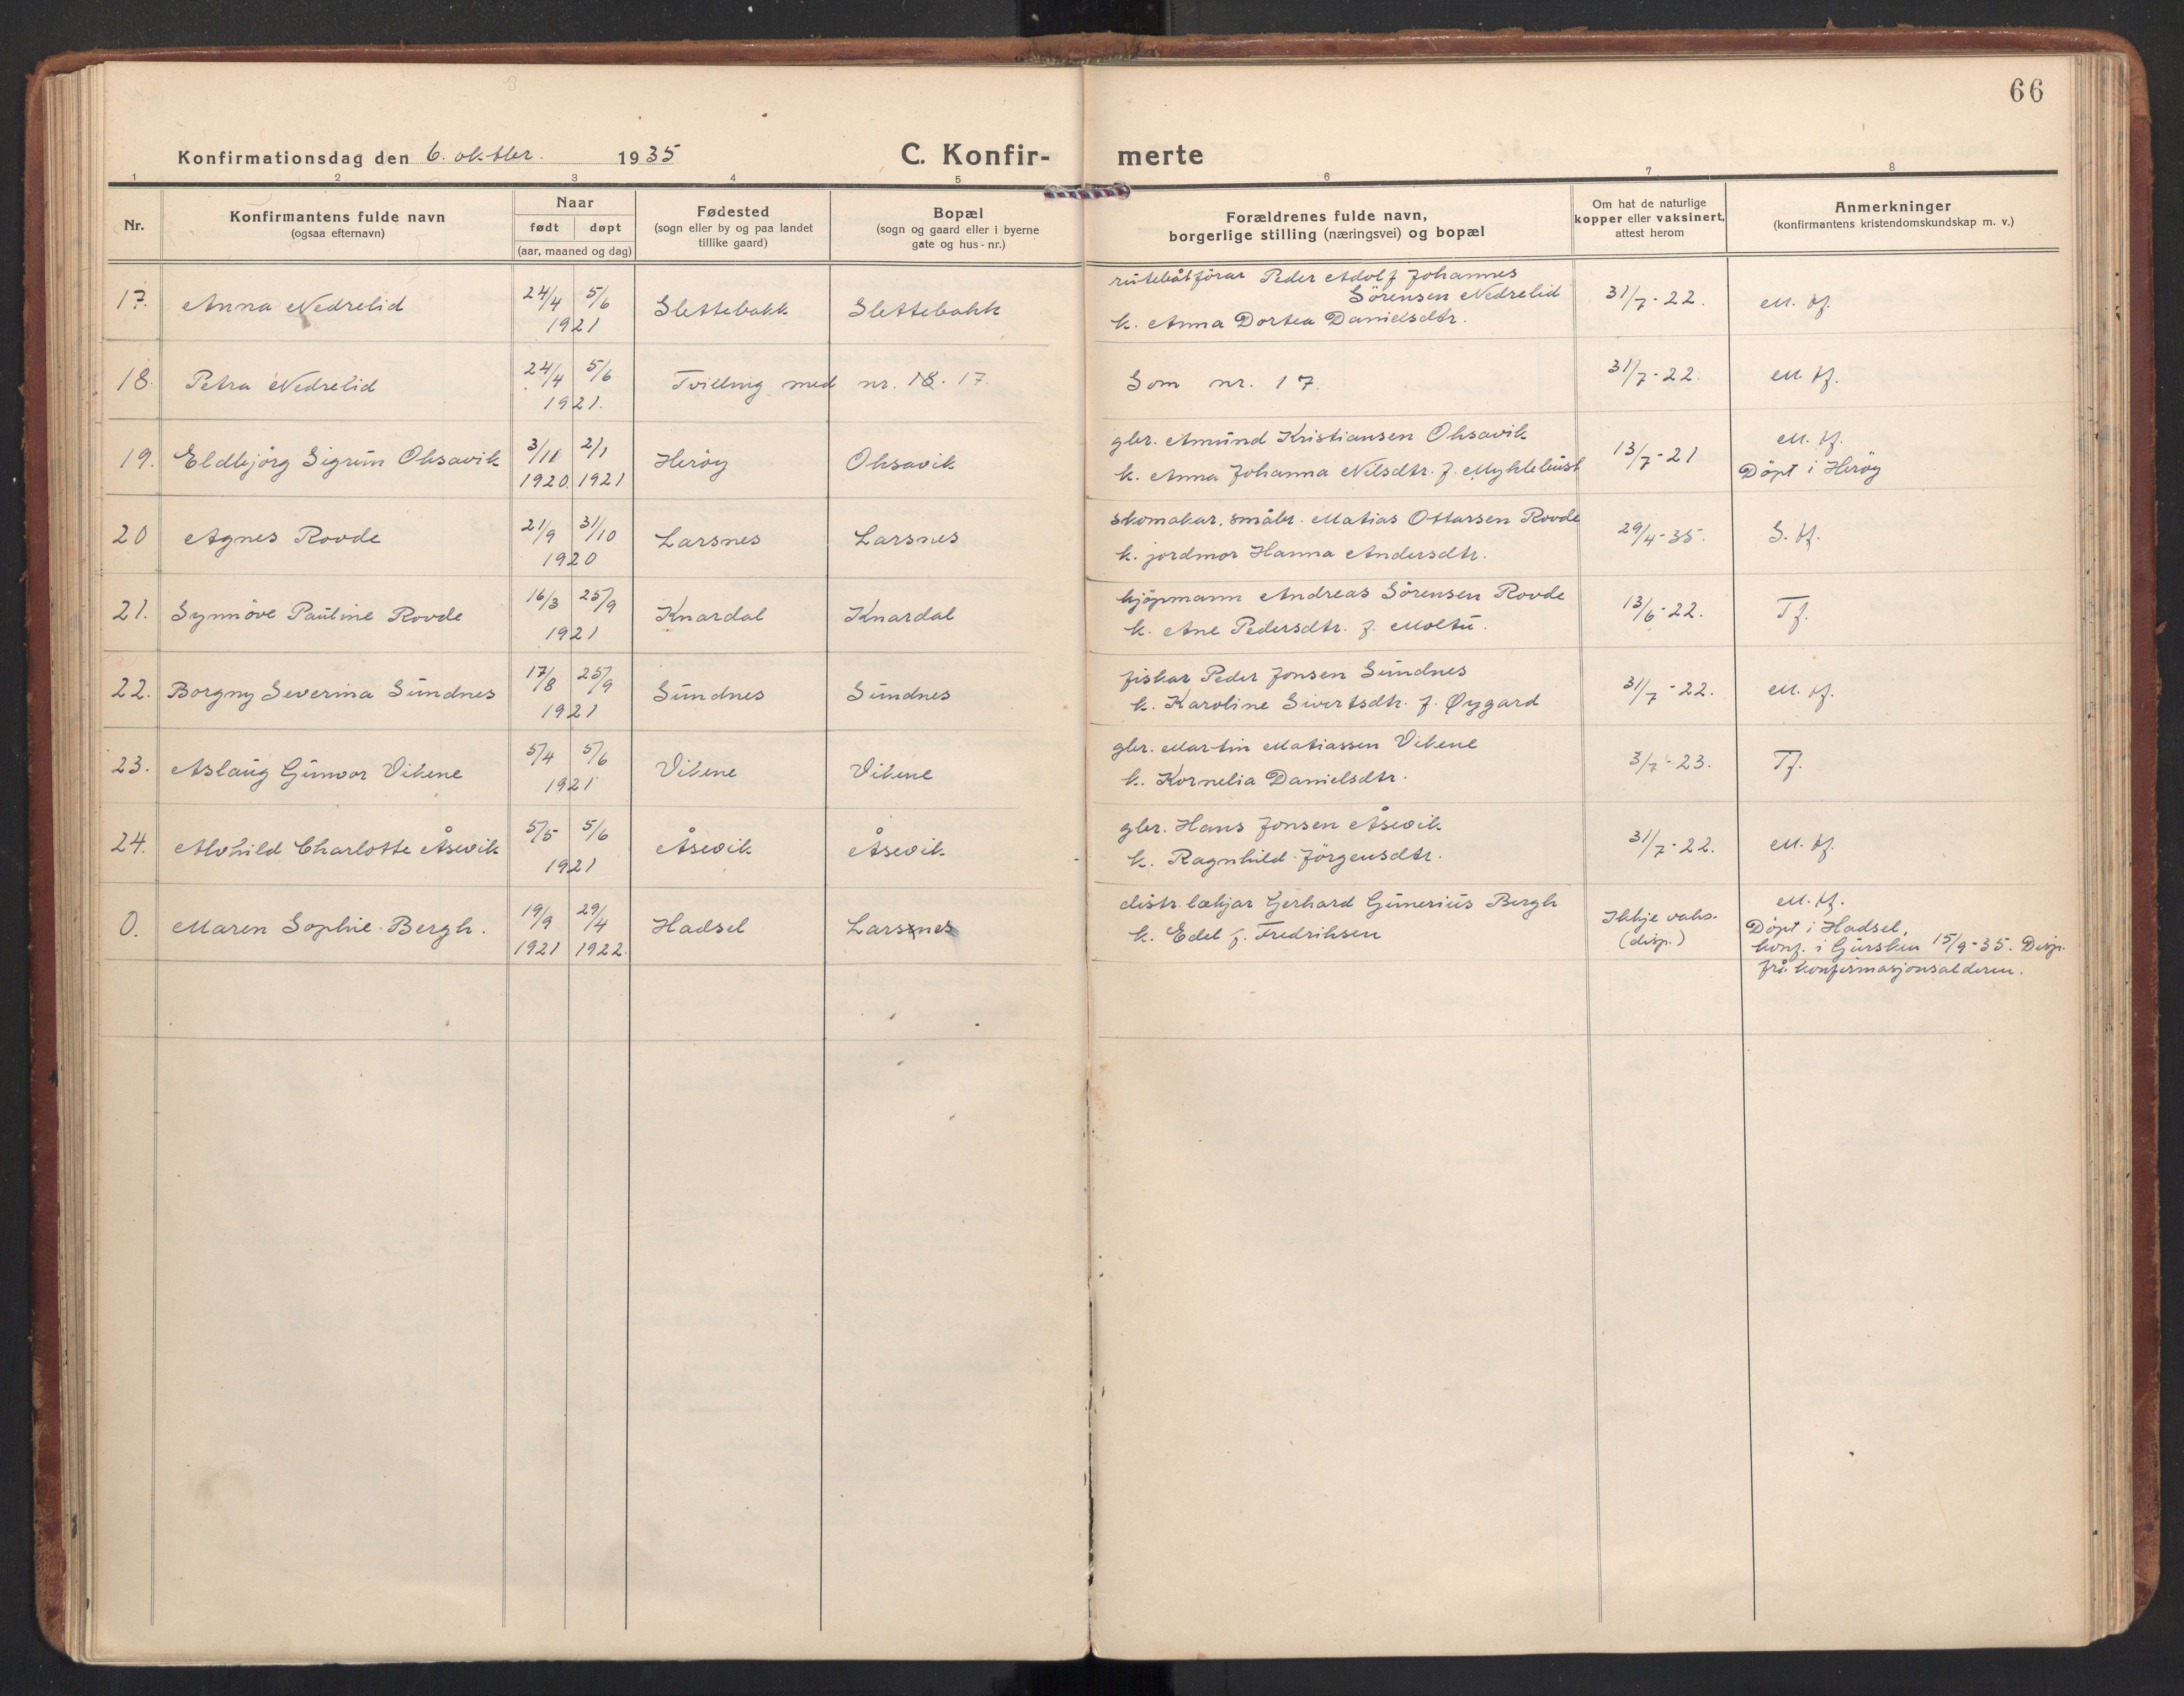 66
Konfirmationsdag den 6. oktbr. 1935
C. Konfir- merte
1 2 3 4 5 6 7 8
Nr.
Konfirmantens fulde navn
(ogsaa efternavn)
Naar
født døpt
(aar, maaned og dag)
Fødested
(sogn eller by og paa landet
tillike gaard)
Bopæl
(sogn og gaard eller i byerne
gate og hus-nr.)
Forældrenes fulde navn,
borgerlige stilling (næringsvei) og bopæl
Om hat de naturlige
kopper eller vaksinert,
attest herom
Anmerkninger
(konfirmantens kristendomskundskap m. v.)
17. Anna Nedrelid 24/4 5/6 1921 Slettebakk Slettebakk
rutebåtförar Peder Adolf Johannes
Sörensen Nedrelid
k. Anna Dortea Danielsdtr.
31/7-22. M. tf.
18. Petra Nedrelid 24/4 5/6 1921. Tvilling med nr. 18. 17.
Som nr. 17.
31/7-22. M. tf.
19. Eldbjörg Sigrun Oksavik 3/11 2/1 1920. 1921 Heröy Oksavik
gbr. Amund Kristiansen Oksavik
k. Anna Johanna Nilsdtr. f. Myklebust
13/7-21 M. tf.
Döpt i Heröy
20 Agnes Rovde 21/9 31/10 1920 Larsnes Larsnes
skomakar, småbr. Matias Ottarsen Rovde
k. jordmor Hanna Andersdtr.
29/4-35. S. tf.
21. Synnöve Pauline Rovde 16/3 25/9 1921 Knardal Knardal
kjöpmann Andreas Sörensen Rovde
k. Ane Pedersdtr. f. Moltu.
13/6-22. Tf.
22. Borgny Severina Sundnes 17/8 25/9 1921 Sundnes Sundnes
fiskar Peder Jonsen Sundnes
k. Karoline Sivertsdtr. f. Øygard
31/7-22. M. tf.
23. Aslaug Gunvor Vikene 5/4 5/6 1921 Vikene Vikene
gbr. Martin Matiassen Vikene
k. Kornelia Danielsdtr.
3/7-23. Tf.
24. Alvhild Charlotte Åsevik 5/5 5/6 1921 Åsevik Åsevik
gbr. Hans Jonsen Åsevik
k. Ragnhild Jörgensdtr.
31/7-22. M. tf.
0. Maren Sophie Bergh. 19/9 29/4 1921 1922. Hadsel Larsnes
distr. lækjar Gerhard Gunerius Bergh
k. Edel f. Fredriksen
Ikkje vaks.
(disp.)
M. tf.
Döpt i Hadsel,
konf. i Gursken 15/9-35. Disp.
frå konfirmasjonsalderen.